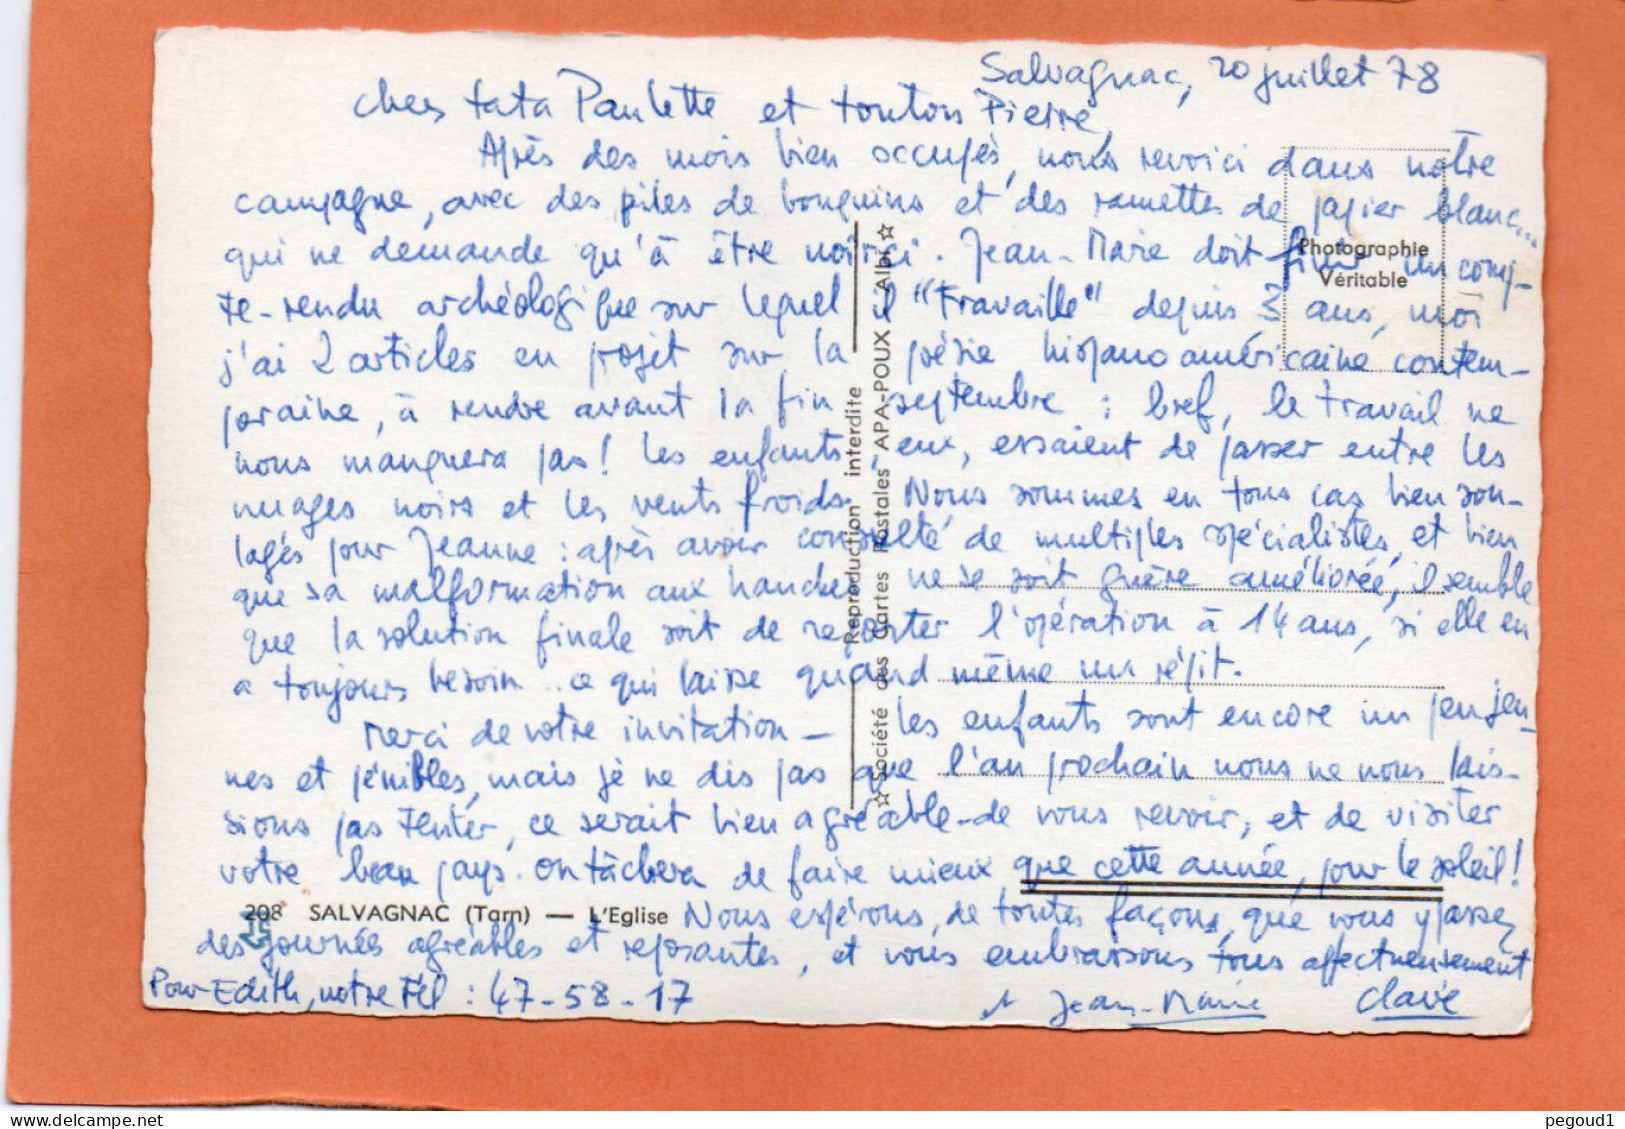 Salvagnac, 20 juillet 78
Chers tata Paulette et tonton Pierre,
Après des mois bien occupés, nous revoici dans notre
campagne, avec des piles de bouquins et des ramettes de papier blanc...
qui ne demande qu'à être noirci. Jean-Marie doit finir un comp-
te-rendu archéologique sur lequel il "travaille" depuis 3 ans, moi
j'ai 2 articles en projet sur la poésie hispanoaméricaine contem-
poraine, à rendre avant la fin septembre : bref, le travail ne
nous manquera pas ! Les enfants, eux, essaient de passer entre les
nuages noirs et les vents froids. Nous sommes en tous cas bien sou-
lagés pour Jeanne : après avoir consulté de multiples spécialistes, et bien
que sa malformation aux hanches ne se soit guère améliorée, il semble
que la solution finale soit de reporter l'opération à 14 ans, si elle en
a toujours besoin.. ce qui laisse quand même un répit.
Merci de votre invitation - les enfants sont encore un peu jeu-
nes et pénibles, mais je ne dis pas que l'an prochain nous ne nous lais-
sions pas tenter, ce serait bien agréable de vous revoir, et de visiter
votre beau pays. On tâchera de faire mieux que cette année, pour le soleil !
Nous espérons, de toutes façons, que vous y passez
des journées agréables et reposantes, et vous embrassons tous affectueusement
Jean-Marie Clave
Pour Edith, notre Tél : 47-58-17
Photographie
Véritable
Reproduction interdite
☆ Société des Cartes Postales APA-POUX Albi ☆
208 SALVAGNAC (Tarn) — L'Eglise
pegoud1